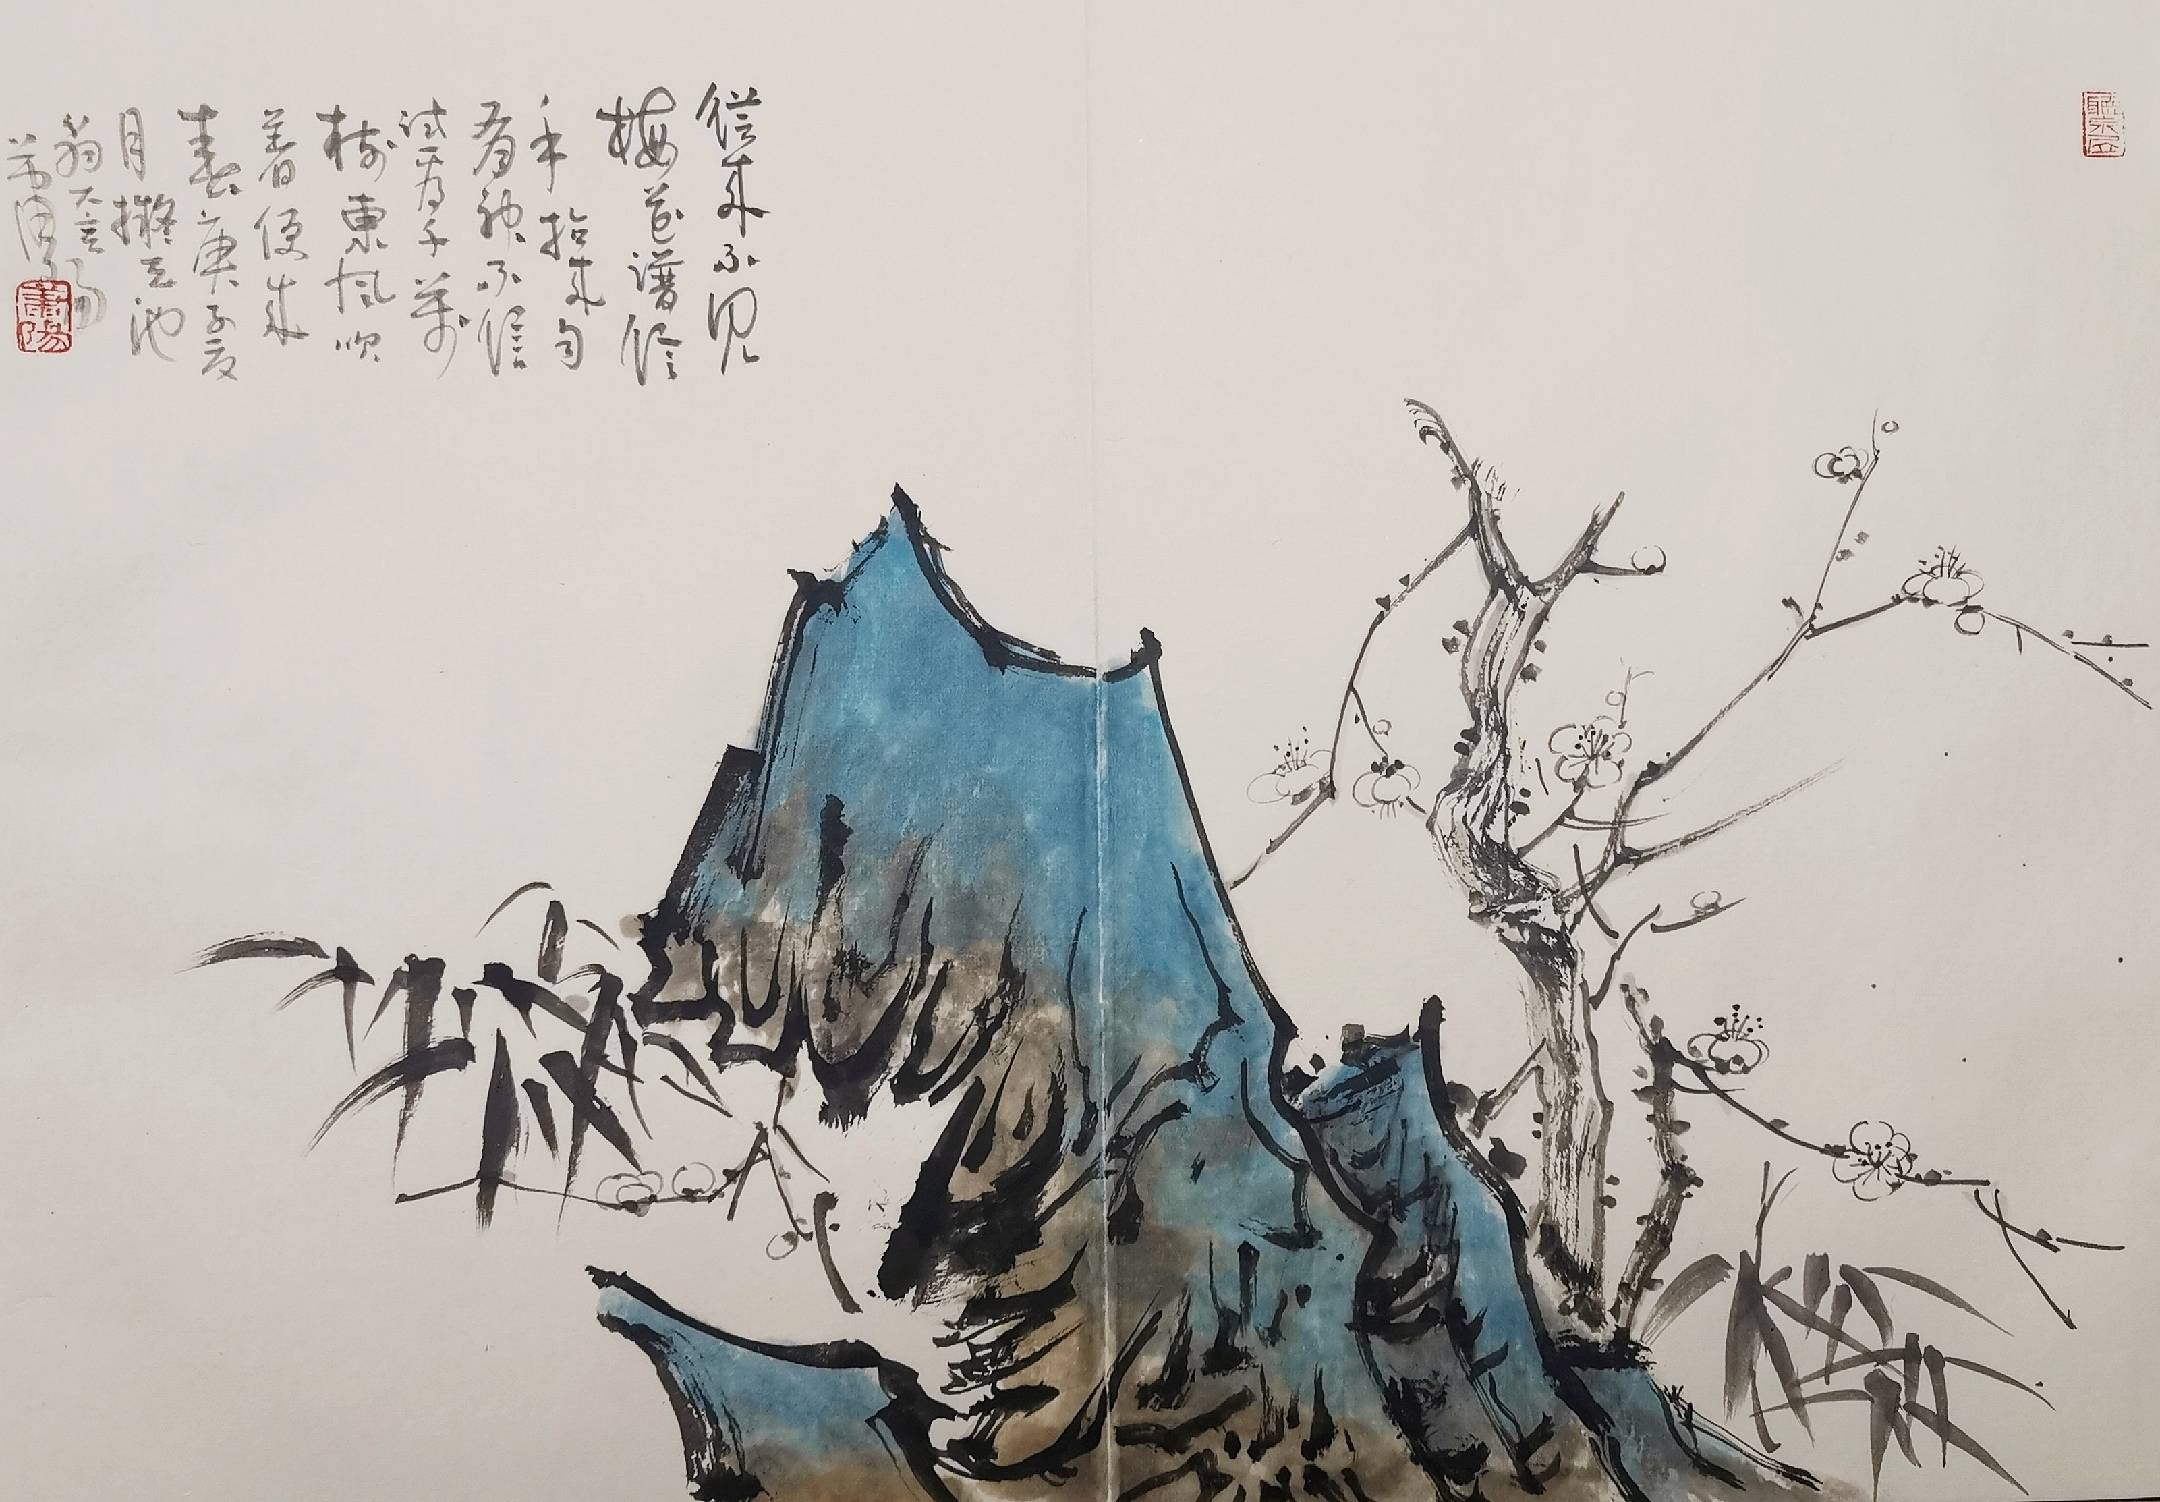 從來不見
梅花譜信
手拈來自
有神不信
試看千萬
樹東風吹
着便成
春庚子夏
月擬天池
翁大意
蕭陽